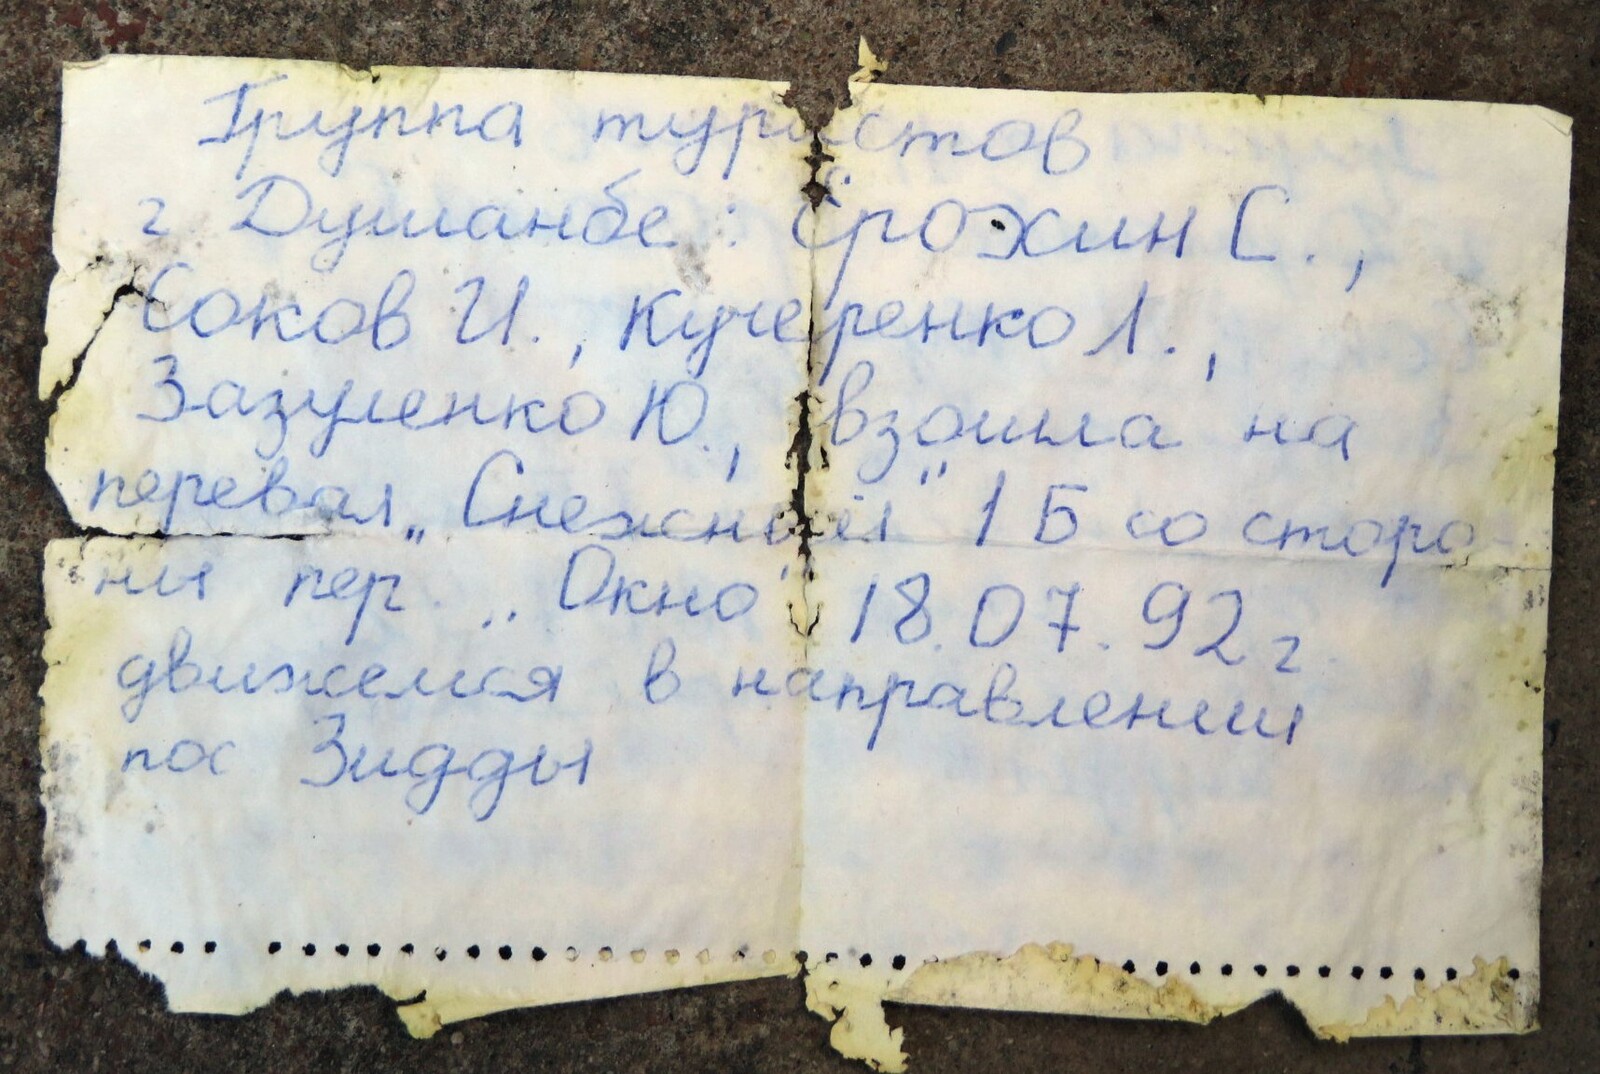 Группа туристов
г Душанбе: Ёрохин С.,
Соков И., Кучеренко Л.,
Зазуленко Ю., взошла на
перевал „Снежный" 1Б со сторо
ны пер. „Окно" 18.07.92г.
движемся в направлении
пос Зидды